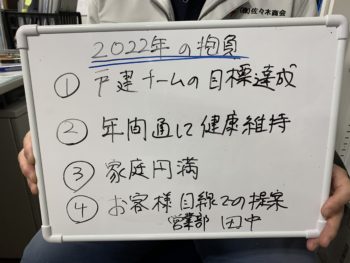 (株)佐々木商会
2022年の抱負
① 戸建チームの目標達成
② 年間通して健康維持
③ 家庭円満
④ お客様目線での提案
営業部 田中